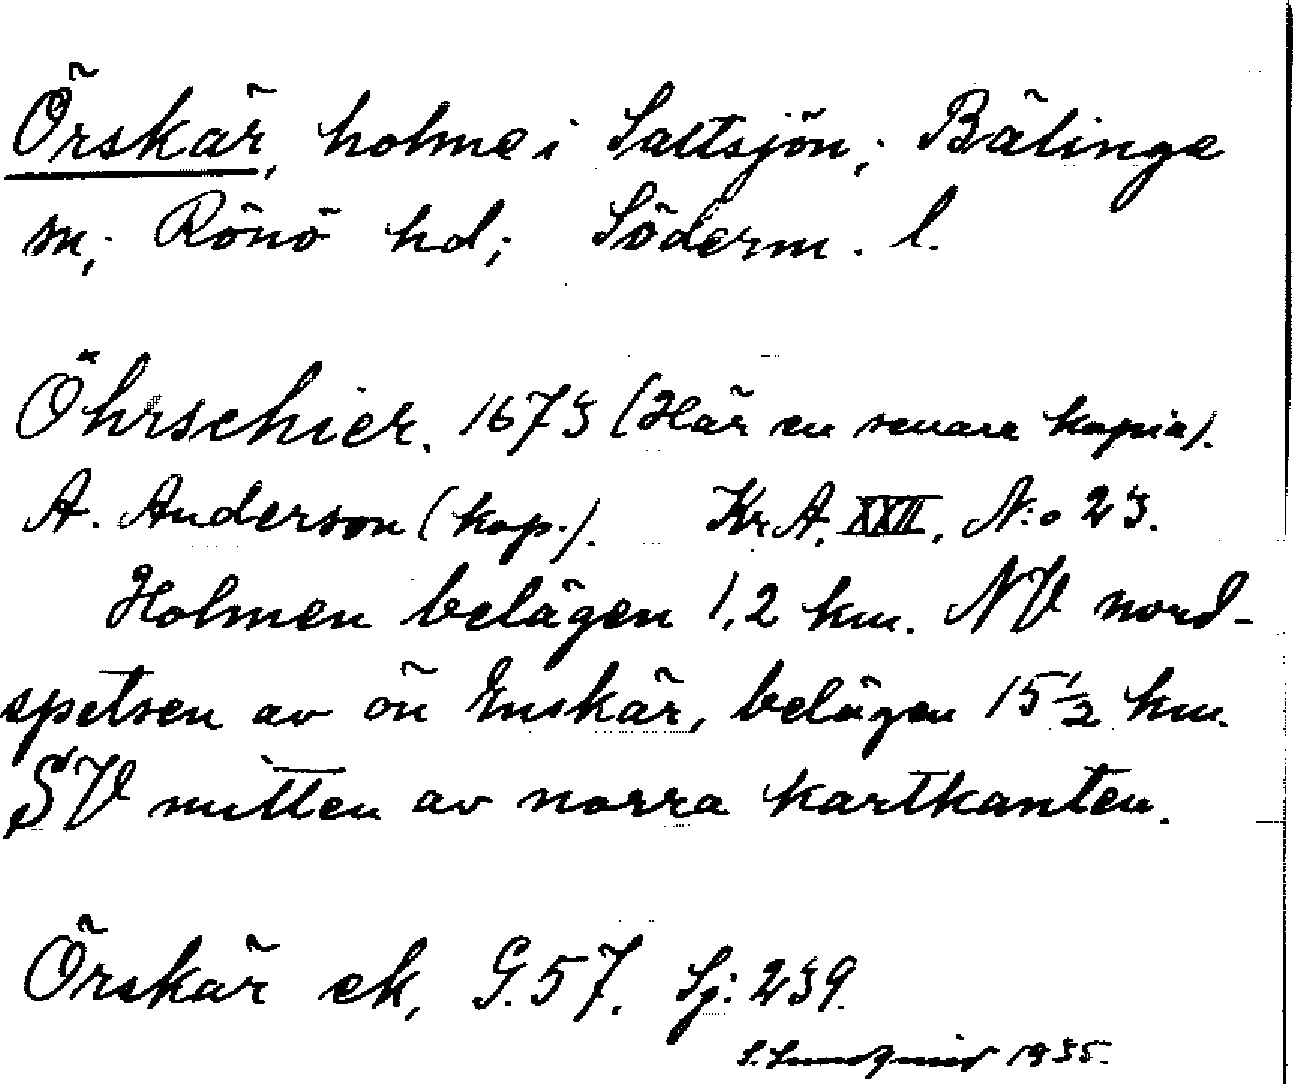 Örskär, holme i Saltsjön; Bälinge
sn; Rönö hd; Söderm. l.
Öhrschier. 1673 (Här en senare kopia).
A. Anderson (kop.). Kr. A. XXII. N:o 23.
Holmen belägen 1,2 km. NV nord-
spetsen av ön Enskär, belägen 15 1/2 km.
SV mitten av norra kartkanten.
Örskär ek, G. 57. Sj: 239.
S. Lundqvist 1935.